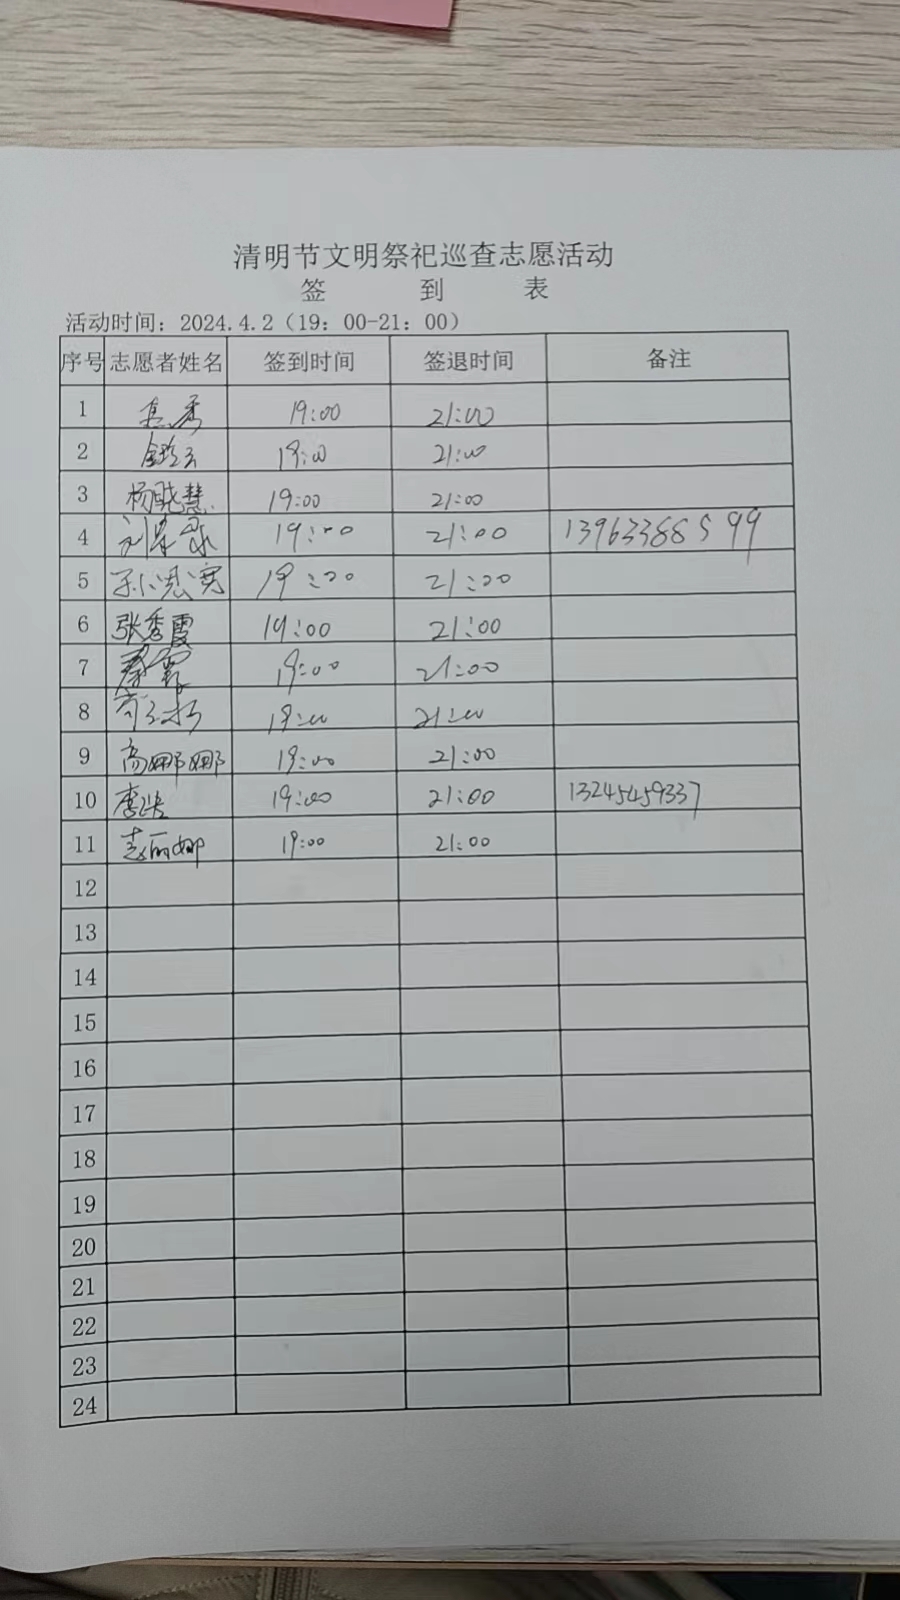 清明节文明祭祀巡查志愿活动
签 到 表
活动时间：2024.4.2（19：00-21：00）
序号 志愿者姓名 签到时间 签退时间 备注
1 19:00 21:00
2 19:00 21:00
3 杨晓慧 19:00 21:00
4 19:00 21:00 13963388599
5 孙思宽 19:00 21:00
6 张秀霞 19:00 21:00
7 秦霞 19:00 21:00
8 19:00 21:00
9 高娜娜 19:00 21:00
10 19:00 21:00 13245459337
11 赵丽娜 19:00 21:00
12
13
14
15
16
17
18
19
20
21
22
23
24